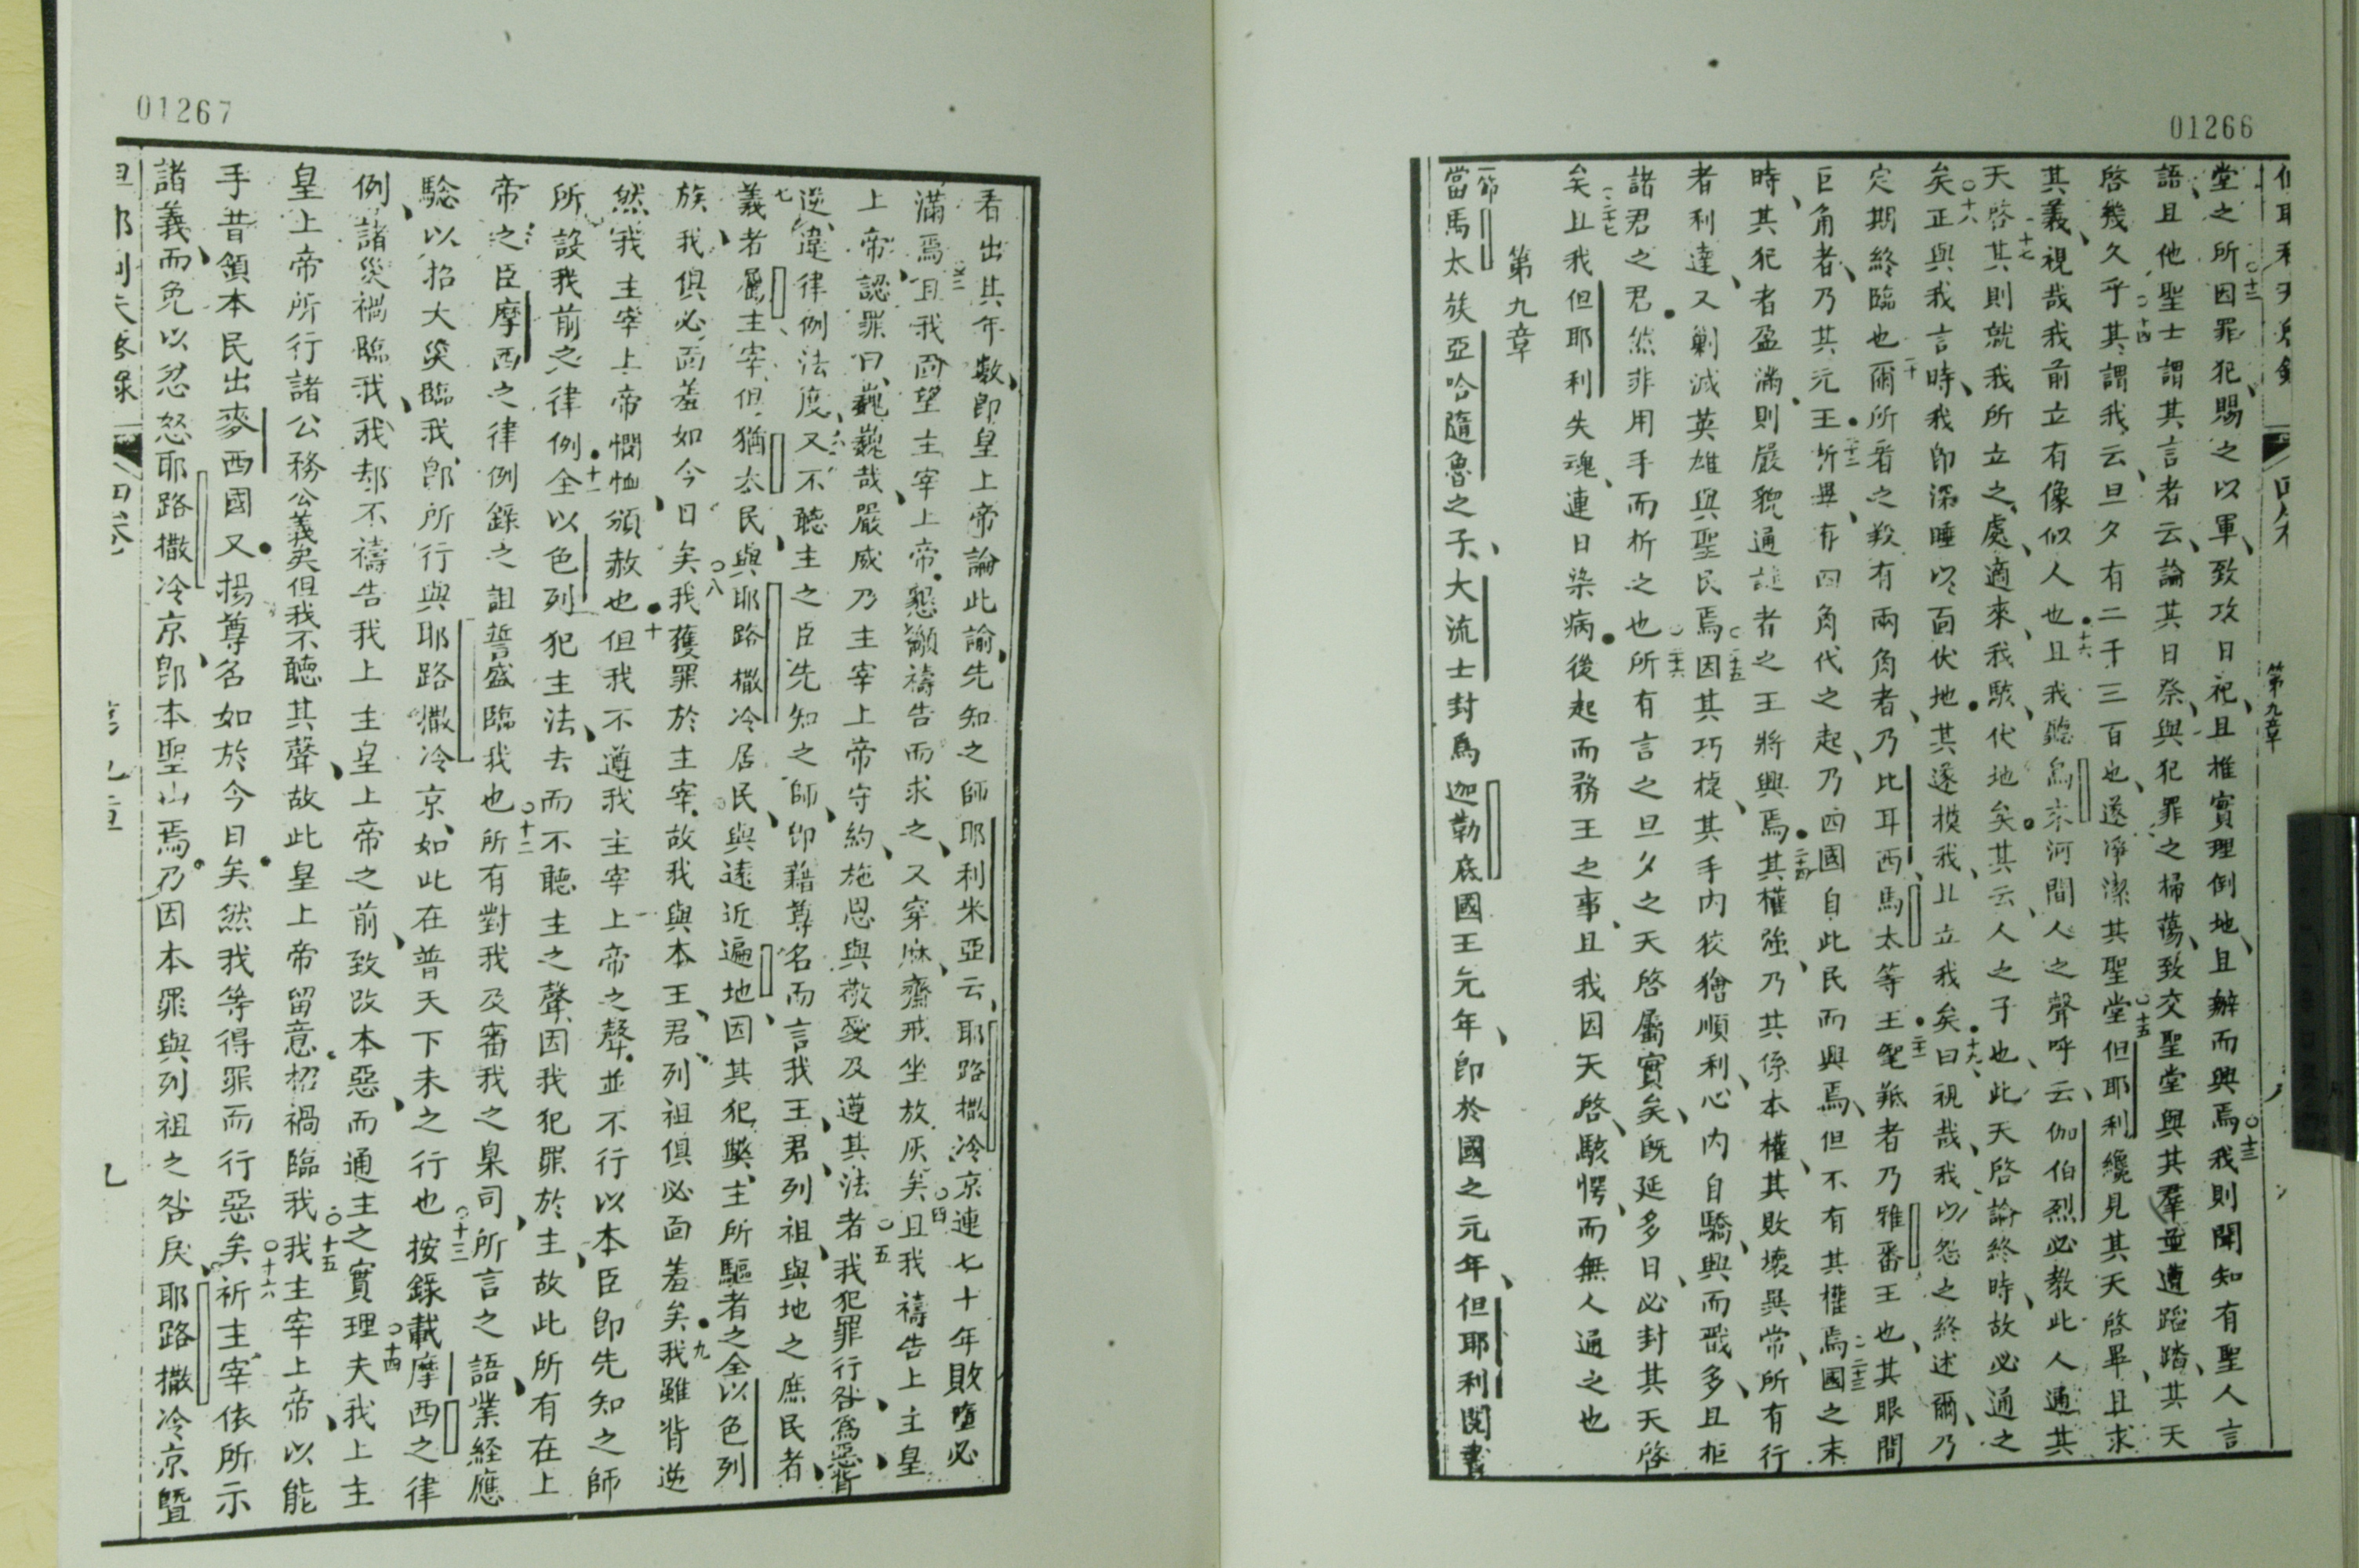 01266
第九章
堂之所因罪犯賜之以軍致攻日祀且推實理倒地且辦而興焉○十三我則聞知有聖人言
語且他聖士謂其言者云論其日祭與犯罪之掃蕩致交聖堂與其羣並遭蹈踏其天
啓幾久乎○十四其謂我云旦夕有二千三百也遂淨潔其聖堂○十五但耶利纔見其天啓畢且求
其義視哉我前立有像似人也十六且我聽烏宋河間人之聲呼云伽伯烈必教此人通其
天啓十七其則就我所立之處適來我駭伏地矣其云人之子也此天啓論終時故必通之
矣○十八正與我言時我即深睡以面伏地其遂模我且立我矣十九曰視哉我以怨之終述爾乃
定期終臨也二十爾所看之羖有兩角者乃比耳西馬太等王二十一髦羝者乃雅番王也其眼間
巨角者乃其元王二十二折畢有四角代之起乃四國自此民而興焉但不有其權焉二十三國之末
時其犯者盈滿則嚴貌通謎者之王將興焉二十四其權強乃其係本權其敗壞異常所有行
者利達又剿滅英雄與聖民焉二十五因其巧捷其手內狡獪順利心內自驕興而戮多且柜
諸君之君然非用手而析之也二十六所有言之旦夕之天啓屬實矣旣延多日必封其天啓
矣二十七且我但耶利失魂連日染病後起而務王之事且我因天啓駭愕而無人通之也
第九章
一節當馬太族亞哈隨魯之子大流士封爲迦勒底國王元年即於國之元年但耶利閱書
01267
看出其年數即皇上帝論此諭先知之師耶利米亞云耶路撒冷京連七十年敗墮必
滿焉三且我面望主宰上帝懇籲禱告而求之又穿麻齋戒坐放灰矣○四且我禱告上主皇
上帝認罪曰巍巍哉嚴威乃主宰上帝守約施恩與敬愛及遵其法者○五我犯罪行咎爲惡背
逆違律例法度六又不聽主之臣先知之師卽藉尊名而言我王君列祖與地之庶民者
七義者屬主宰但猶太民與耶路撒冷居民與遠近遍地因其犯獘主所驅者之全以色列
族我俱必面羞如今日矣○八我獲罪於主宰故我與本王君列祖俱必面羞矣九我雖背逆
然我主宰上帝憫恤頒赦也十但我不遵我主宰上帝之聲並不行以本臣即先知之師
所設我前之律例十一全以色列犯主法去而不聽主之聲因我犯罪於主故此所有在上
帝之臣摩西之律例錄之詛誓盛臨我也○十二所有對我及審我之臬司所言之語業経應
驗以招大災臨我卽所行與耶路撒冷京如此在普天下未之行也○十三按錄載摩西之律
例諸災禍臨我我却不禱告我上主皇上帝之前致改本惡而通主之實理○十四夫我上主
皇上帝所行諸公務公義矣但我不聽其聲故此皇上帝留意招禍臨我○十五我主宰上帝以能
手昔領本民出麥西國又揚尊名如於今日矣然我等得罪而行惡矣○十六祈主宰依所示
諸義而免以忿怒耶路撒冷京卽本聖山焉乃因本罪與列祖之咎戾耶路撒冷京暨
四卷
九